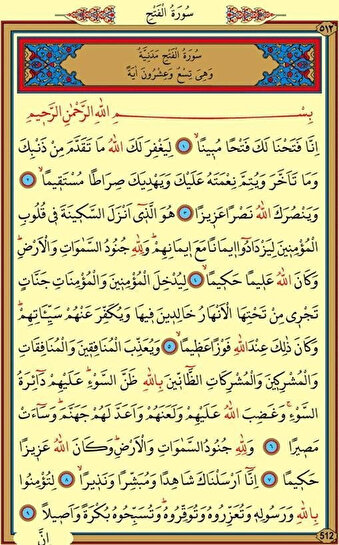 سُورَةُ الْفَتْحِ
٥١٢
سُورَةُ الْفَتْحِ مَدَنِيَّةٌ
وَهِيَ تِسْعٌ وَعِشْرُونَ اٰيَةً
بِسْــــمِ اللهِ الرَّحْمٰنِ الرَّحِيمِ
اِنَّا فَتَحْنَا لَكَ فَتْحًا مُبِينًاۙ ﴿١﴾ لِيَغْفِرَ لَكَ اللهُ مَا تَقَدَّمَ مِنْ ذَنْبِكَ
وَمَا تَاَخَّرَ وَيُتِمَّ نِعْمَتَهُ عَلَيْكَ وَيَهْدِيَكَ صِرَاطًا مُسْتَقِيمًاۙ ﴿٢﴾
وَيَنْصُرَكَ اللهُ نَصْرًا عَزِيزًا ﴿٣﴾ هُوَ الَّذِٓي اَنْزَلَ السَّكِينَةَ فِي قُلُوبِ
الْمُؤْمِنِينَ لِيَزْدَادُٓوا اِيمَانًا مَعَ اِيمَانِهِمْۜ وَلِلّٰهِ جُنُودُ السَّمٰوَاتِ وَالْاَرْضِۜ
وَكَانَ اللهُ عَلِيمًا حَكِيمًاۙ ﴿٤﴾ لِيُدْخِلَ الْمُؤْمِنِينَ وَالْمُؤْمِنَاتِ جَنَّاتٍ
تَجْرِي مِنْ تَحْتِهَا الْاَنْهَارُ خَالِدِينَ فِيهَا وَيُكَفِّرَ عَنْهُمْ سَيِّـَٔاتِهِمْۜ
وَكَانَ ذٰلِكَ عِنْدَ اللهِ فَوْزًا عَظِيمًاۙ ﴿٥﴾ وَيُعَذِّبَ الْمُنَافِقِينَ وَالْمُنَافِقَاتِ
وَالْمُشْرِكِينَ وَالْمُشْرِكَاتِ الظَّٓانِّينَ بِاللهِ ظَنَّ السَّوْءِۜ عَلَيْهِمْ دَٓائِرَةُ
السَّوْءِۚ وَغَضِبَ اللهُ عَلَيْهِمْ وَلَعَنَهُمْ وَاَعَدَّ لَهُمْ جَهَنَّمَۜ وَسَٓاءَتْ
مَصِيرًا ﴿٦﴾ وَلِلّٰهِ جُنُودُ السَّمٰوَاتِ وَالْاَرْضِۜ وَكَانَ اللهُ عَزِيزًا
حَكِيمًا ﴿٧﴾ اِنَّٓا اَرْسَلْنَاكَ شَاهِدًا وَمُبَشِّرًا وَنَذِيرًاۙ ﴿٨﴾ لِتُؤْمِنُوا
بِاللهِ وَرَسُولِهِ وَتُعَزِّرُوهُ وَتُوَقِّرُوهُۜ وَتُسَبِّحُوهُ بُكْرَةً وَاَصِيلًا ﴿٩﴾
اِنَّ
512